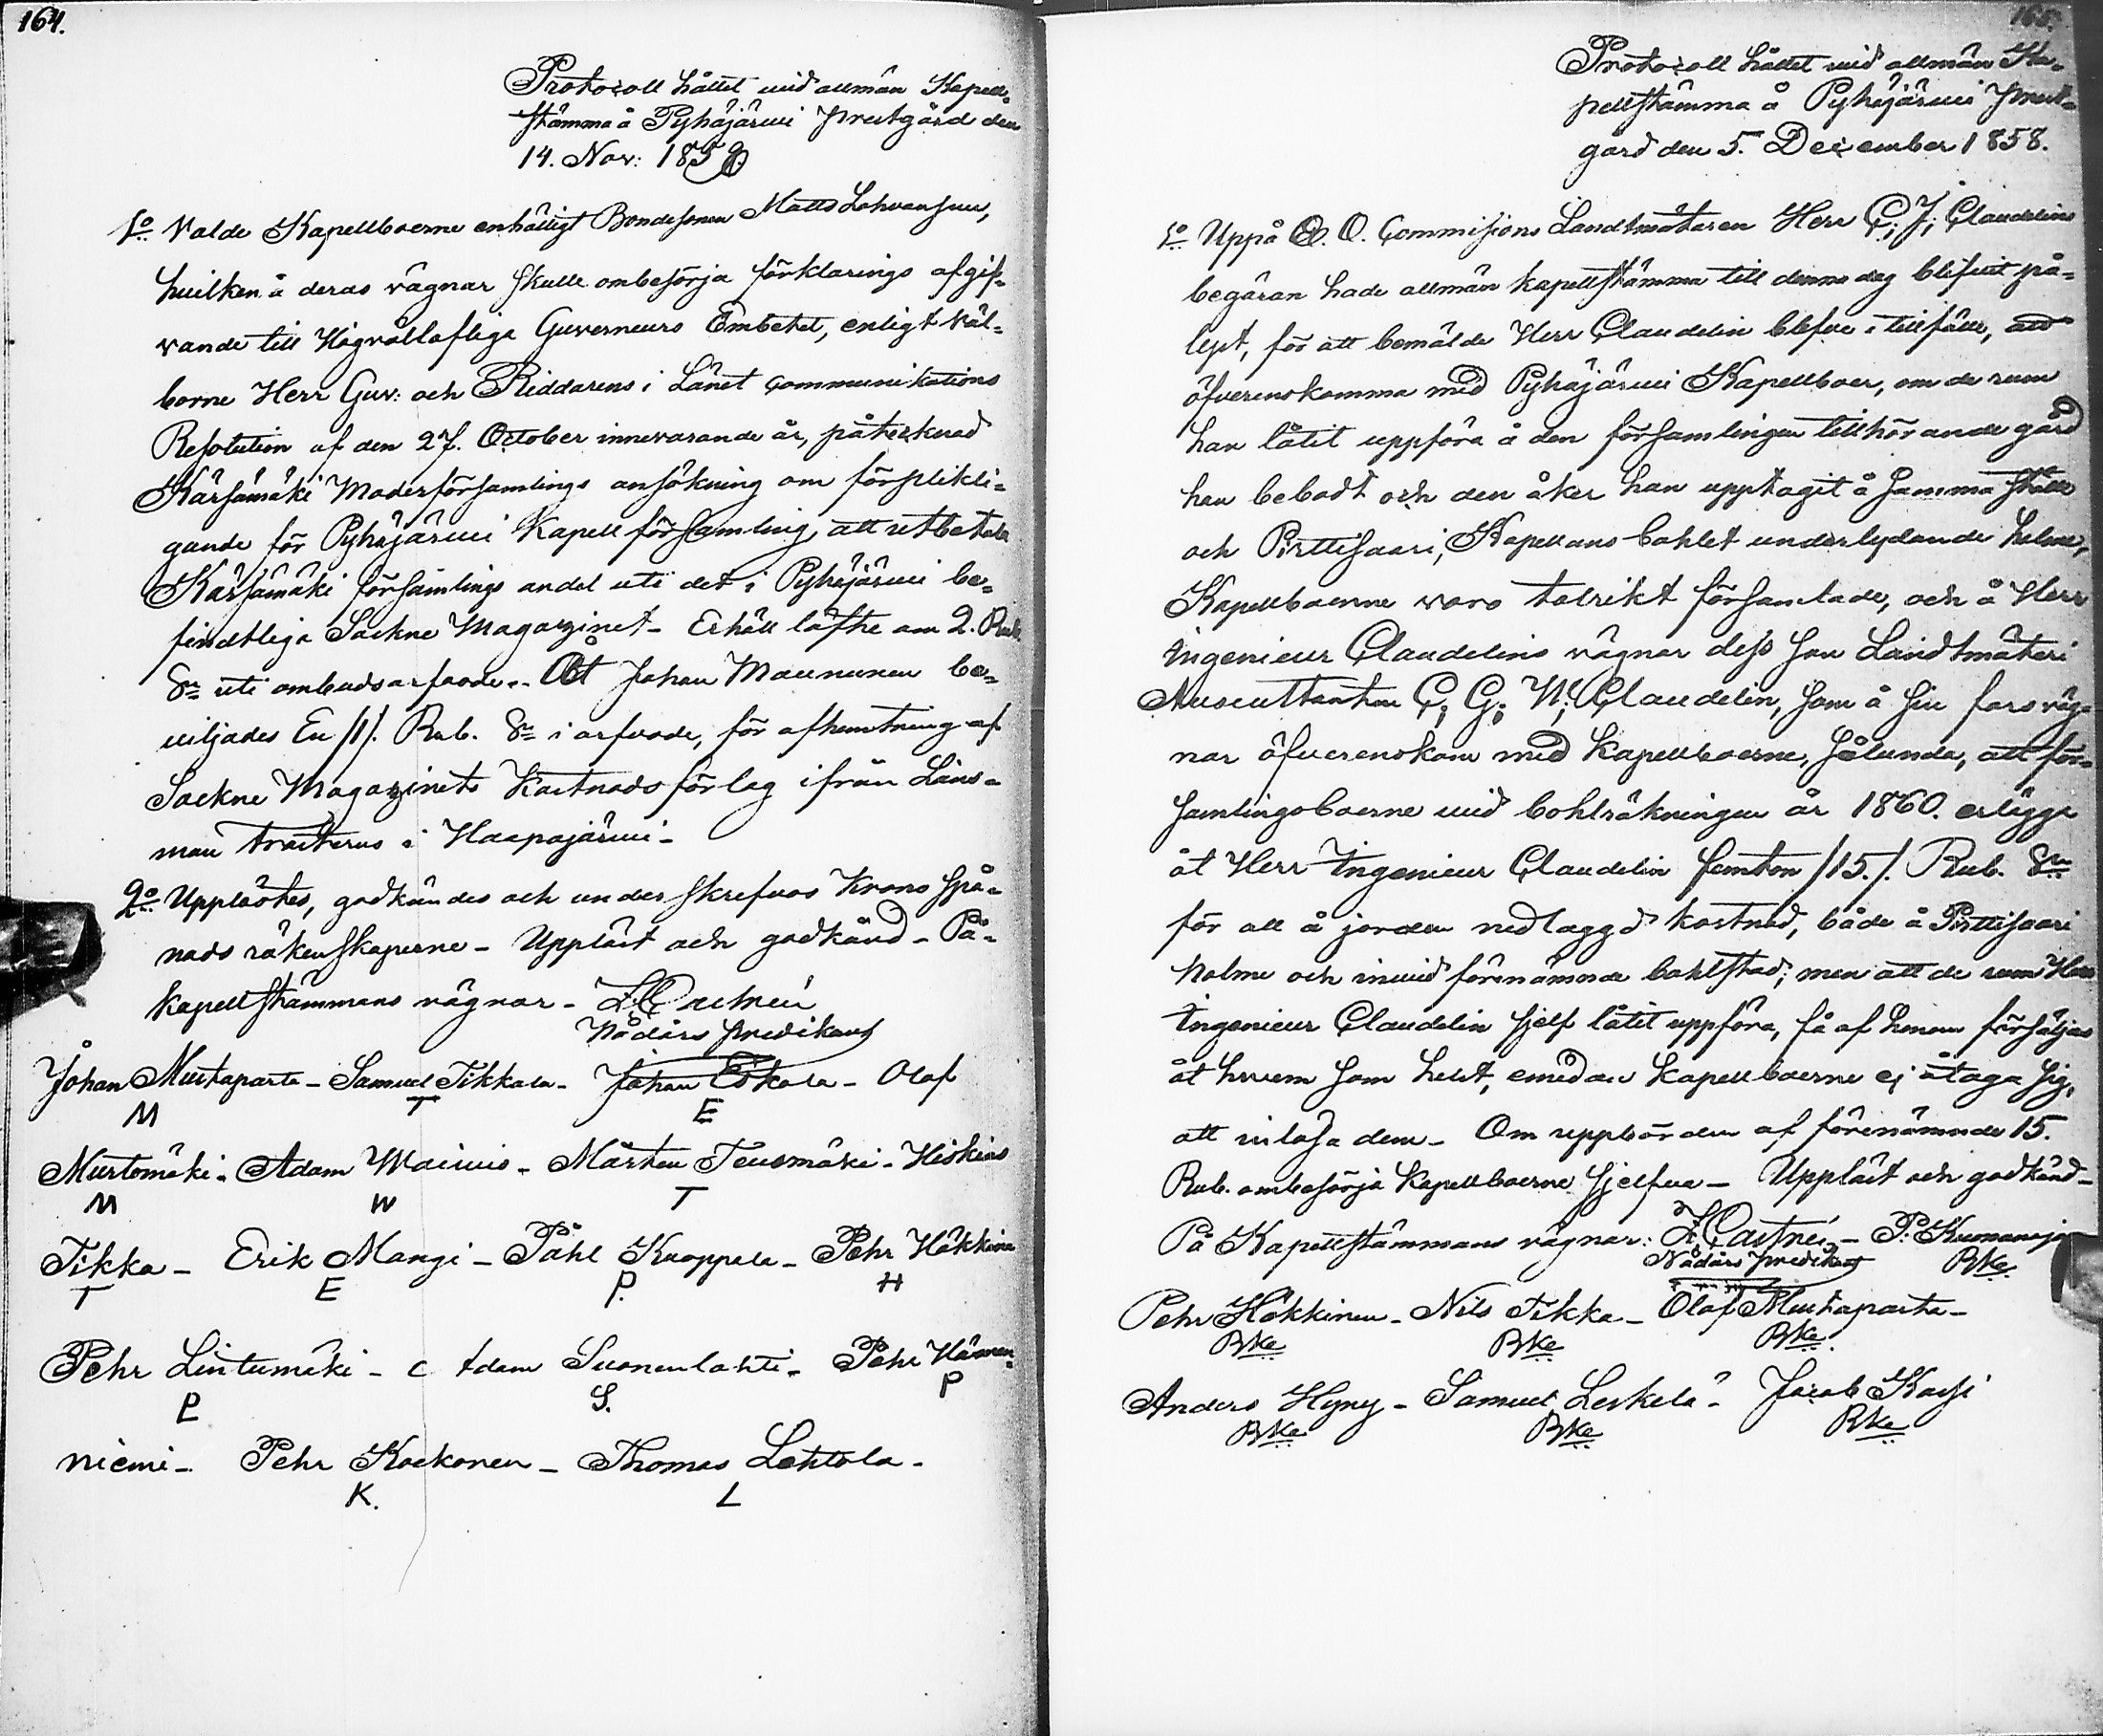 164.
Protocoll hållet vid allmän Kapell-
stämma å Pyhäjärvi prestgård den
14. Nov: 1858.
1o Valde Kapellboerne enhälligt Bondesonen Matts Lohvansuu,
hvilken å deras vägnar skulle ombesörja förklarings afgif-
vande till Högvällofliga Guverneurs Embetet, enligt Väl-
borne Herr Guv: och Riddarens i Länet Communikations
Resolution af den 27. October innevarande år, påtecknad
Kärsämäki Moderförsamlings ansökning om förplikti-
gande för Pyhäjärvi Kapellförsamling att utbetala
Kärsämäki församlings andel uti det i Pyhäjärvi be-
findtliga Sockne Magazinet - Erhåll löfte om 2. Rub.
Sr uti ombudsarfvode. - Åt Johan Maununen be-
viljades En /1/. Rub. Sr i arfvode, för afhemtning af
Sockne Magazinets Kostnadsförlag ifrån Läns-
man i Haapajärvi -
2o Upplästes, godkändes och underskrefvos Krono spå-
nads räkenskaperne - Uppläst och godkänd - På-
kapellstämmans vägnar - Z. Castrén
Nådårs predikant
Johan Murtoparta - Samuel Tikkala - Johan Eskola - Olof
M T E
Murtomäki - Adam Wainio - Mårten Teuomäki - Hiskias
M W T
Tikka - Erik Mangi - Påhl Kuoppala - Pehr Häkkinen
T E P. H
Pehr Lintumäki - Adam Suonenlahti - Pehr Hänen-
P S. P
niemi - Pehr Kockonen - Thomas Lehtola -
K. L
165.
Protocoll hållet vid allmän Ka-
pellstämma å Pyhäjärvi prest-
gård den 5. December 1858.
1o Uppå E. O. Commissions Landtmätaren Herr C. J. Claudelins
begäran hade allmän kapellstämma till denna dag blifvit på-
lyst, för att bemälde Herr Claudelin blefve i tillfälle, att
öfverenskomma med Pyhäjärvi Kapellboer, om de rum
han låtit uppföra å den församlingen tillhörande gård
han bebodt och den åker han upptagit å samma ställe
och Pirttisaari, Kapellans bohlet underlydande holme,
Kapellboerne voro talrikt församlade, och å Herr
Ingenieur Claudelins vägnar dess son Landtmäteri
Auscultanten C. G. W. Claudelin, som å sin fars väg-
nar öfverenskom med Kapellboerne, sålunda, att för-
samlingsboerne vid bohlräkningen år 1860. erlägga
åt Herr Ingenieur Claudelin femton /15./. Rub. Sr
för all å jorden nedlaggd kostnad, både å Pirttisaari
holme och invid förenämnde bohlstad; men att de rum Herr
Ingenieur Claudelin sjelf låtit uppföra, få af honom försäljas
åt hvem som helst, emedan Kapellboerne ej åtaga sig,
att inlösa dem - Om uppbörden af förenämnde 15.
Rub. ombesörja Kapellboerne sjelfva - Uppläst och godkänd -
På Kapellstämmans vägnar: Z. Castrén - P. Kumanoja
Nådårs predikant Bke.
Pehr Häkkinen - Nils Tikka - Olof Murtoparta -
Bke Bke Bke
Anders Hyny - Samuel Leskelä - Jacob Karsi
Bke Bke Bke